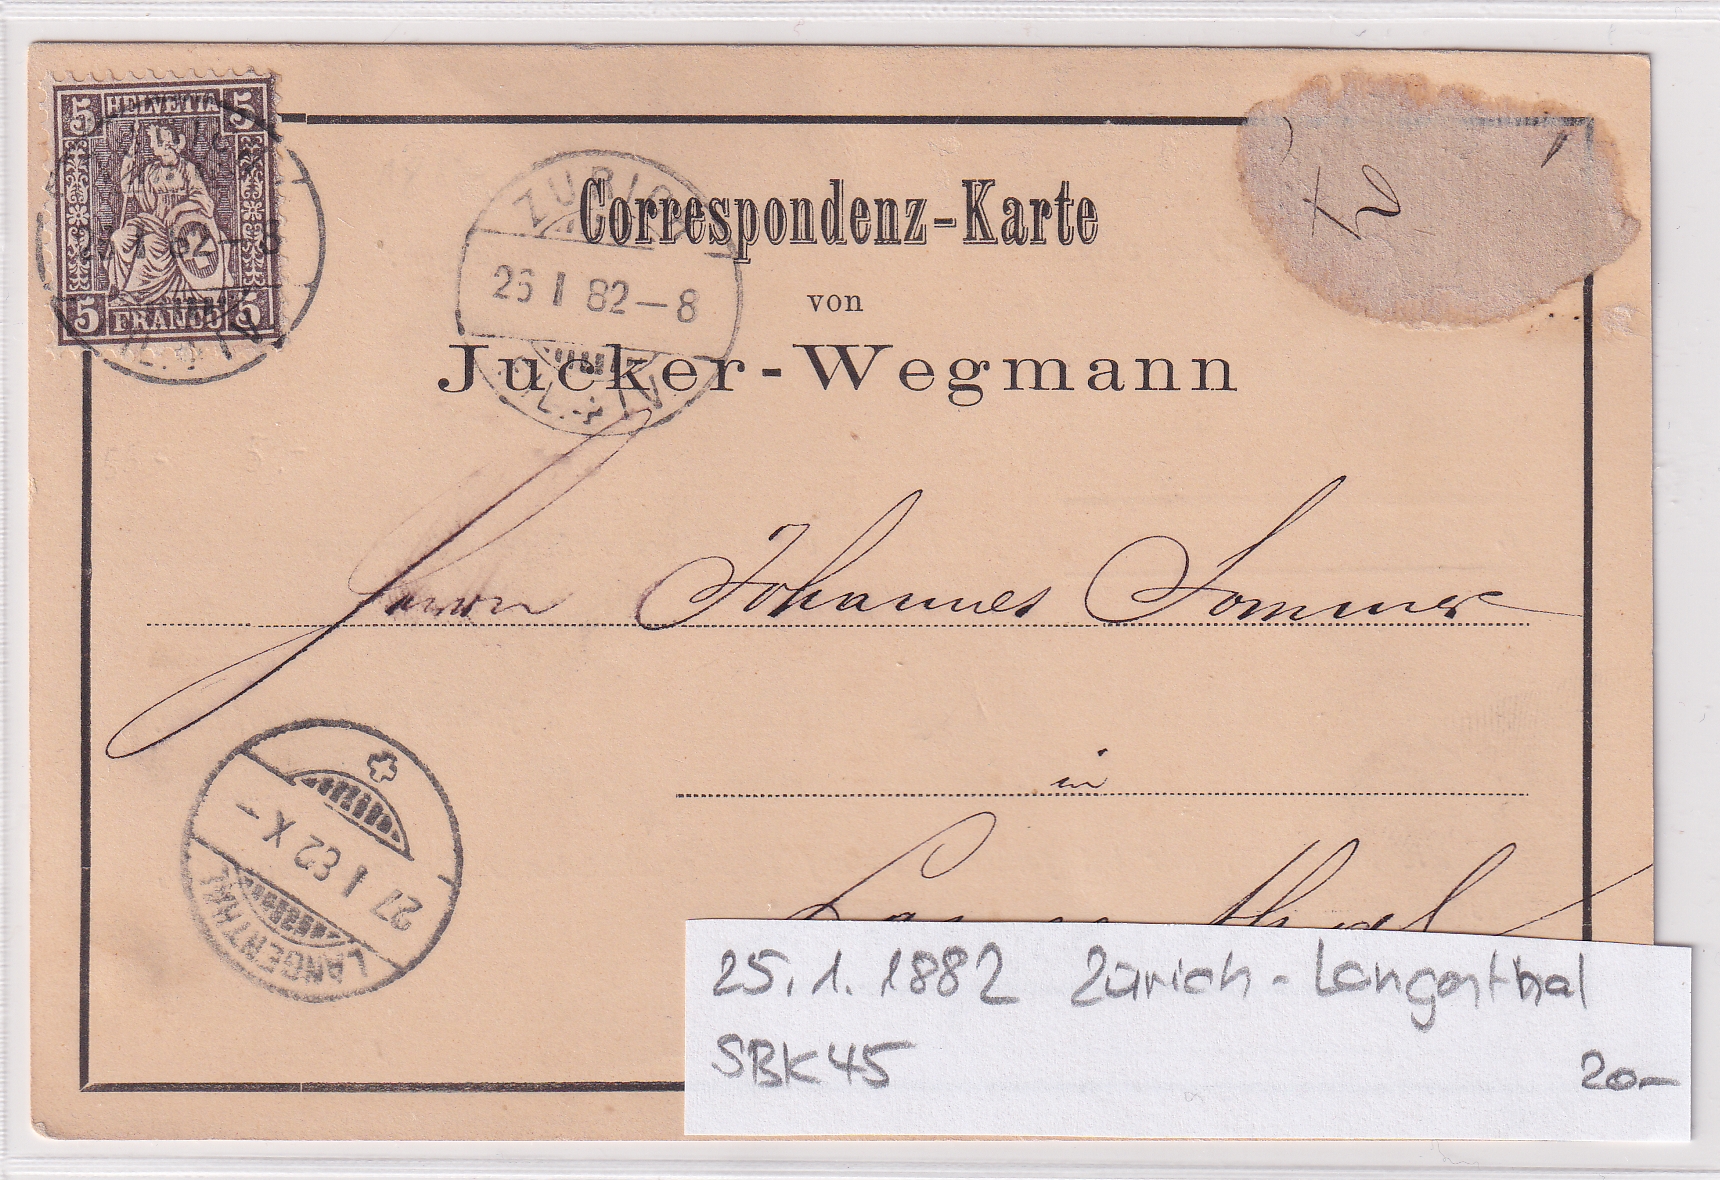 5 HELVETIA 5
5 FRANCO 5
ZÜRICH
26 I 82-8
Correspondenz-Karte
von
Jucker-Wegmann
Herrn Johannes Sommer
in
27 I 82 X-
LANGENTHAL
25.1.1882 Zürich - Langenthal
SBK 45
20-